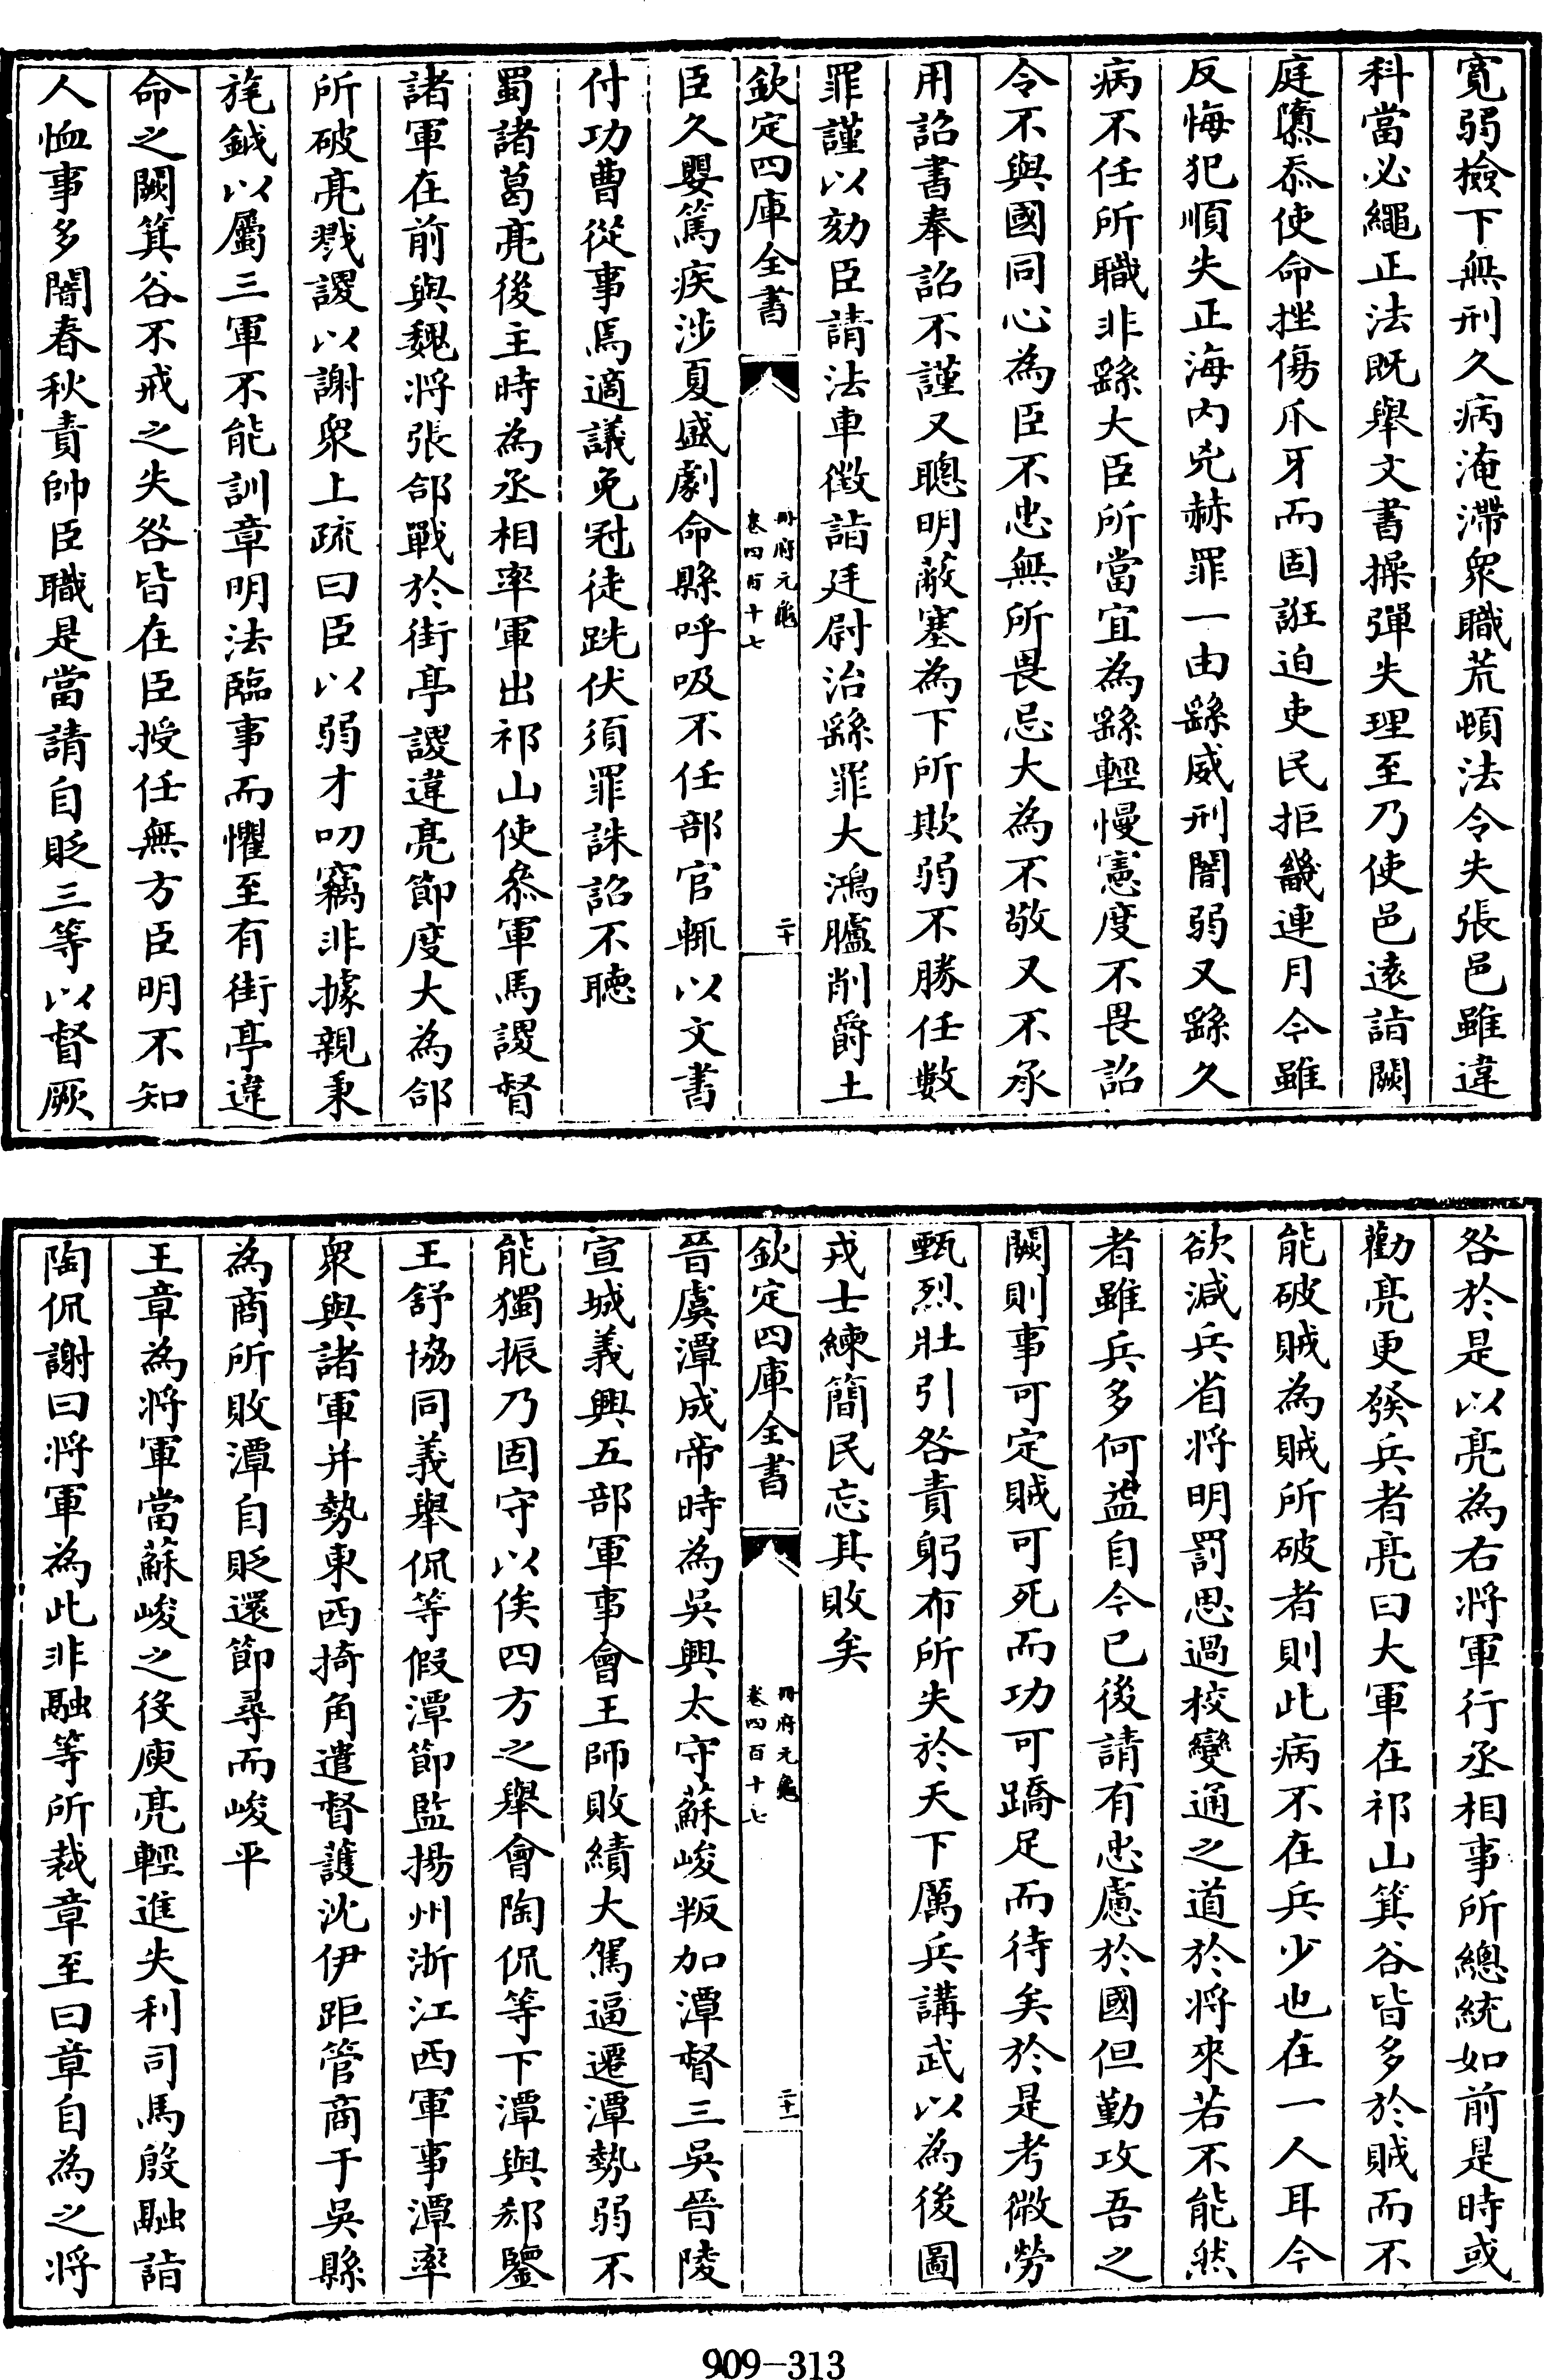 寛弱檢下無刑久病淹滯衆職荒頓法令失張邑雖違
科當必繩正法既舉文書操彈失理至乃使邑逺詣闕
庭隳忝使命挫傷爪牙而固誑迫吏民拒讒連月今雖
反悔犯順失正海内兇赫罪一由繇威刑闇弱又繇久
病不任所職非繇大臣所當宜為繇輕慢憲度不畏詔
令不與國同心為臣不忠無所畏忌大為不敬又不承
用詔書奉詔不謹又聰明蔽塞為下所欺弱不勝任數
罪謹以劾臣請法車徴詣廷尉治繇罪大鴻臚削爵土
欽定四庫全書
冊府元龜
卷四百十七
二十
臣久嬰篤疾涉夏盛劇命縣呼吸不任部官輒以文書
付功曹從事馬適議免冠徒跣伏須罪誅詔不聽
蜀諸葛亮後主時為丞相率軍出祁山使參軍馬謖督
諸軍在前與魏將張郃戰於街亭謖違亮節度大為郃
所破亮戮謖以謝衆上疏曰臣以弱才叨竊非據親秉
旄鉞以屬三軍不能訓章明法臨事而懼至有街亭違
命之闕箕谷不戒之失咎皆在臣授任無方臣明不知
人恤事多闇春秋責帥臣職是當請自貶三等以督厥
咎於是以亮為右將軍行丞相事所總統如前是時或
勸亮更發兵者亮曰大軍在祁山箕谷皆多於賊而不
能破賊為賊所破者則此病不在兵少也在一人耳今
欲減兵省將明罰思過校變通之道於將來若不能然
者雖兵多何益自今已後請有忠慮於國但勤攻吾之
闕則事可定賊可死而功可蹻足而待矣於是考微勞
甄烈壯引咎責躬布所失於天下厲兵講武以為後圖
戎士練簡民忘其敗矣
欽定四庫全書
冊府元龜
卷四百十七
二十一
晉虞潭成帝時為吳興太守蘇峻叛加潭督三吳晉陵
宣城義興五部軍事會王師敗績大駕逼遷潭勢弱不
能獨振乃固守以俟四方之舉會陶侃等下潭與郗鑒
王舒協同義舉侃等假潭節監揚州浙江西軍事潭率
衆與諸軍并勢東西掎角遣督護沈伊距管商于吳縣
為商所敗潭自貶還節尋而峻平
王章為將軍當蘇峻之役庾亮輕進失利司馬殷融詣
陶侃謝曰將軍為此非融等所裁章至曰章自為之將
909-313